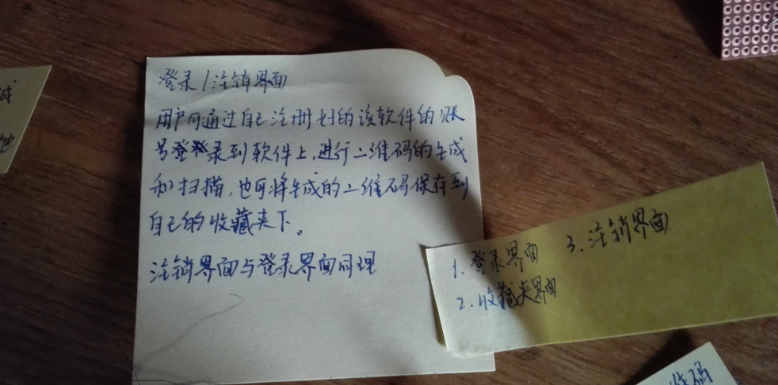 登录/注销界面
用户可通过自己注册过的该软件的账
号登录到软件上,进行二维码的生成
和扫描,也可将生成的二维码保存到
自己的收藏夹下。
注销界面与登录界面同理
1. 登录界面
2. 收藏夹界面
3. 注销界面
成
码